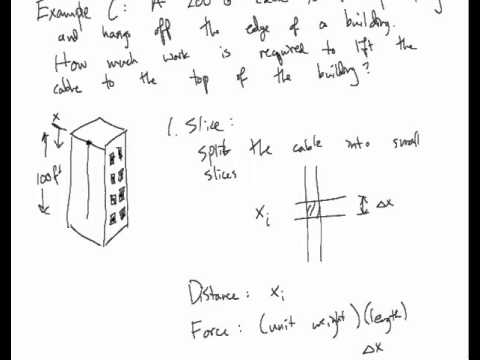 Example C: A 200
and hangs off the edge of a building.
How much work is required to lift the
cable to the top of the building?
x
1. Slice:
split the cable into small
slices
100 ft
xi
Δx
Distance: xi
Force: (unit weight)(length)
Δx